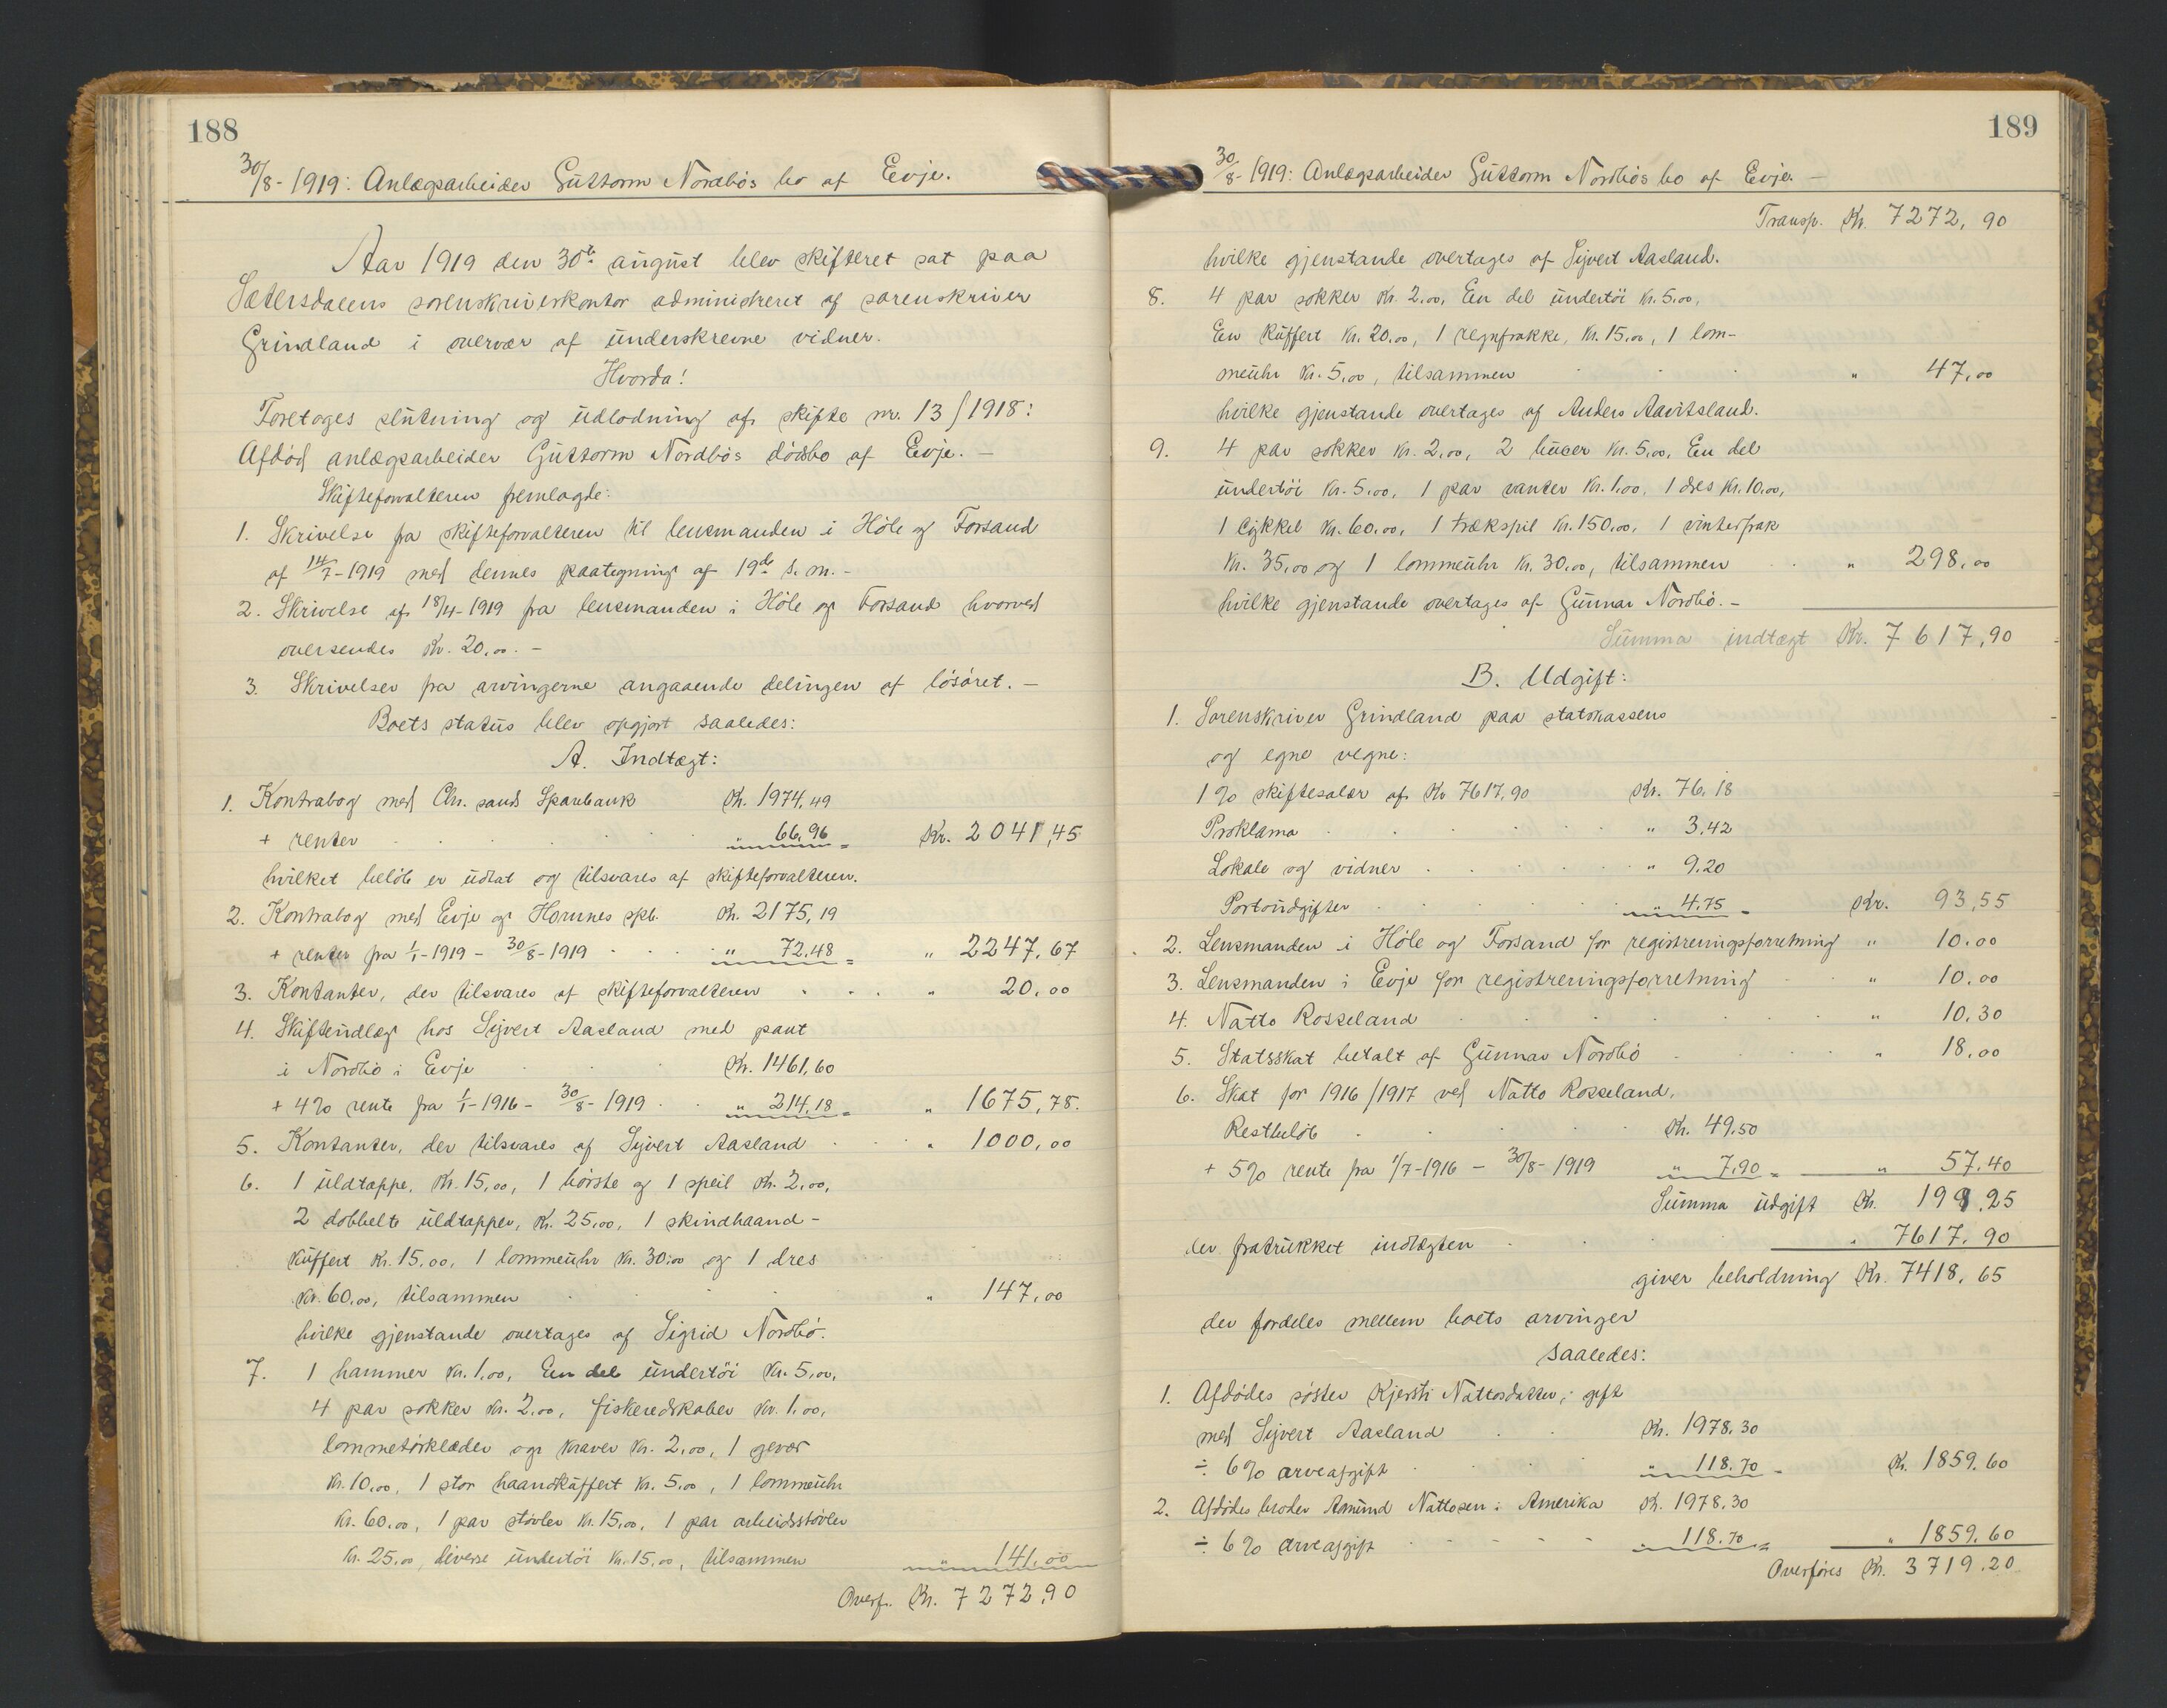 188
30/8-1919: Anlægsarbeider Guttorm Nordbös bo af Evje.
Aar 1919 den 30te august blev skifteret sat paa
Sætersdalens sorenskriverkontor administreret af sorenskriver
Grindland i overvær af underskrevne vidner.
Hvorda!
Foretoges slutning og udlodning af skifte nr. 13/1918:
Afdöd anlægsarbeider Guttorm Nordbös dödsbo af Evje. -
Skifteforvalteren fremlagde:
1. Skrivelse fra skifteforvalteren til lensmanden i Höle og Forsand
af 14/7-1919 med dennes paategning af 19de s. m. -
2. Skrivelse af 18/4-1919 fra lensmanden i Höle og Forsand hvorved
oversendes Kr. 20,00. -
3. Skrivelser fra arvingerne angaaende delingen af lösöret. -
Boets status blev opgjort saaledes:
A. Indtægt:
1. Kontrabog med Chr.sands Sparebank Kr. 1974,49
+ renter " 66,96 = Kr. 2041,45
hvilket belöb er udtat og tilsvares af skifteforvalteren.
2. Kontrabog med Evje og Hornnes spb. Kr. 2175,19
+ renter fra 1/1-1919 - 30/8-1919 " 72,48 = " 2247,67
3. Kontanter, der tilsvares af skifteforvalteren " 20,00
4. Skifteudlæg hos Sijvert Aasland med pant
i Nordbö i Evje Kr. 1461,60
+ 4% rente fra 1/1-1916 - 30/8-1919 " 214,18 = " 1675,78.
5. Kontanter, der tilsvares af Sijvert Aasland " 1000,00
6. 1 uldtæppe, Kr. 15,00, 1 börste og 1 speil Kr. 2,00,
2 dobbelte uldtæpper, Kr. 25,00, 1 skindhaand-
kuffert Kr. 15,00, 1 lommeuhr Kr. 30,00 og 1 dres
Kr. 60,00, tilsammen " 147,00
hvilke gjenstande overtages af Sigrid Nordbö.
7. 1 hammer Kr. 1,00, En del undertöi Kr. 5,00,
4 par sokker Kr. 2,00, fiskeredskaber Kr. 1,00,
lommetörklæder og kraver Kr. 2,00, 1 gevær
Kr. 10,00, 1 stor haandkuffert Kr. 5,00, 1 lommeuhr
Kr. 60,00, 1 par stövler Kr. 15,00, 1 par arbeidsstövler
Kr. 25,00, diverse undertöi Kr. 15,00, tilsammen " 141,00
Overf. Kr. 7272,90
189
30/8-1919: Anlægsarbeider Guttorm Nordbös bo af Evje. -
Transp. Kr. 7272,90
hvilke gjenstande overtages af Sijvert Aasland.
8. 4 par sokker Kr. 2,00, En del undertöi Kr. 5,00,
En kuffert Kr. 20,00, 1 regnfrakke, Kr. 15,00, 1 lom-
meuhr Kr. 5,00, tilsammen " 47,00
hvilke gjenstande overtages af Anders Aavitsland.
9. 4 par sokker Kr. 2,00, 2 huer Kr. 5,00, En del
undertöi Kr. 5,00, 1 par vanter Kr. 1,00, 1 dres Kr. 10,00,
1 cykkel Kr. 60,00, 1 trækspil Kr. 150,00, 1 vinterfrak
Kr. 35,00 og 1 lommeuhr Kr. 30,00, tilsammen " 298,00
hvilke gjenstande overtages af Gunnar Nordbö. -
Summa indtægt Kr. 7617,90
B. Udgift:
1. Sorenskriver Grindland paa statskassens
og egne vegne:
1% skiftesalær af Kr 7617,90 Kr. 76,18
Proklama " 3,42
Lokale og vidner " 9.20
Portoudgifter " 4.75 = Kr. 93,55
2. Lensmanden i Höle og Forsand for registreringsforretning " 10.00
3. Lensmanden i Evje for registreringsforretning " 10.00
4. Natto Rosseland " 10.30
5. Statsskat betalt af Gunnar Nordbö " 18,00
6. Skat for 1916/1917 ved Natto Rosseland,
Restbelöb Kr. 49.50
+ 5% rente fra 1/7-1916 - 30/8-1919 " 7,90 = " 57.40
Summa udgift Kr. 199.25
der fratrukket indtægten " 7617.90
giver beholdning Kr. 7418,65
der fordeles mellem boets arvinger
saaledes:
1. Afdödes söster Kjersti Nattosdatter, gift
med Sijvert Aasland Kr. 1978.30
÷ 6% arveafgift " 118.70 = Kr. 1859.60
2. Afdödes broder Amund Nattosen i Amerika Kr. 1978,30
÷ 6% arveafgift " 118.70 = " 1859.60
Overföres Kr. 3719.20